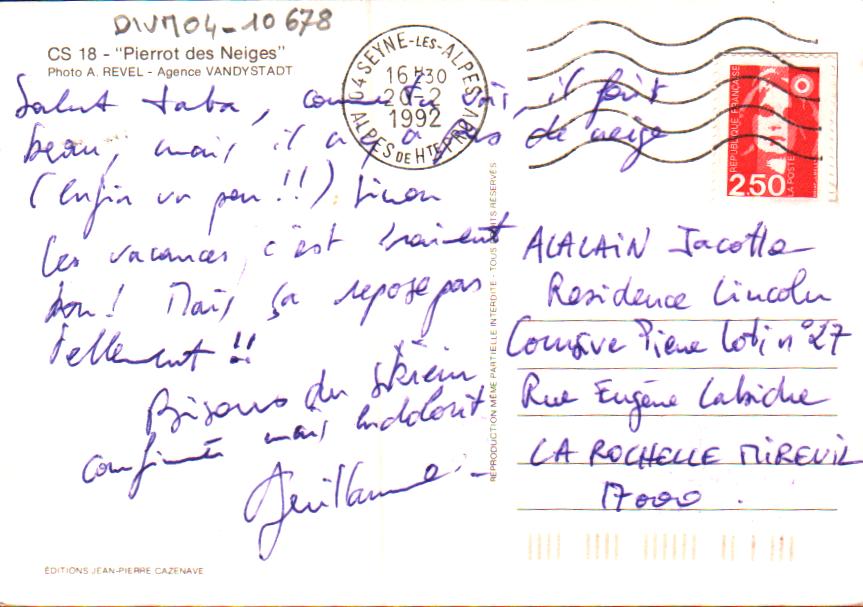 DIVM04-10678
CS 18 - "Pierrot des Neiges"
Photo A. REVEL - Agence VANDYSTADT
04 SEYNE-LES-ALPES
16H30
20-2
1992
ALPES DE HTE PROV
RÉPUBLIQUE FRANÇAISE
LA POSTE
2.50
Salut Jaba, comme tu vois, il fait
beau, mais il a y a pas de neige
(enfin un peu !!) Sinon
les vacances c'est vraiment
bon! Mais ça repose pas
tellement !!
Bisous du skieur
confirmé mais endolorit
Guillaume
REPRODUCTION MÊME PARTIELLE INTERDITE - TOUS DROITS RÉSERVÉS
ALALAIN Jacotte
Residence Lincoln
Coursive Pierre Loti n°27
Rue Eugène Labiche
LA ROCHELLE MIREUIL
17000.
ÉDITIONS JEAN-PIERRE CAZENAVE